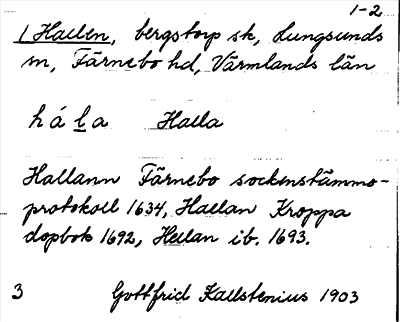 1-2
1 Hallen, bergstorp sk, Lungsunds
sn, Färnebo hd, Värmlands län
háḻa Halla
Hallann Färnebo sockenstämmo-
protokoll 1634, Hallan Kroppa
dopbok 1692, Hellan ib. 1693.
3 Gottfrid Kallstenius 1903